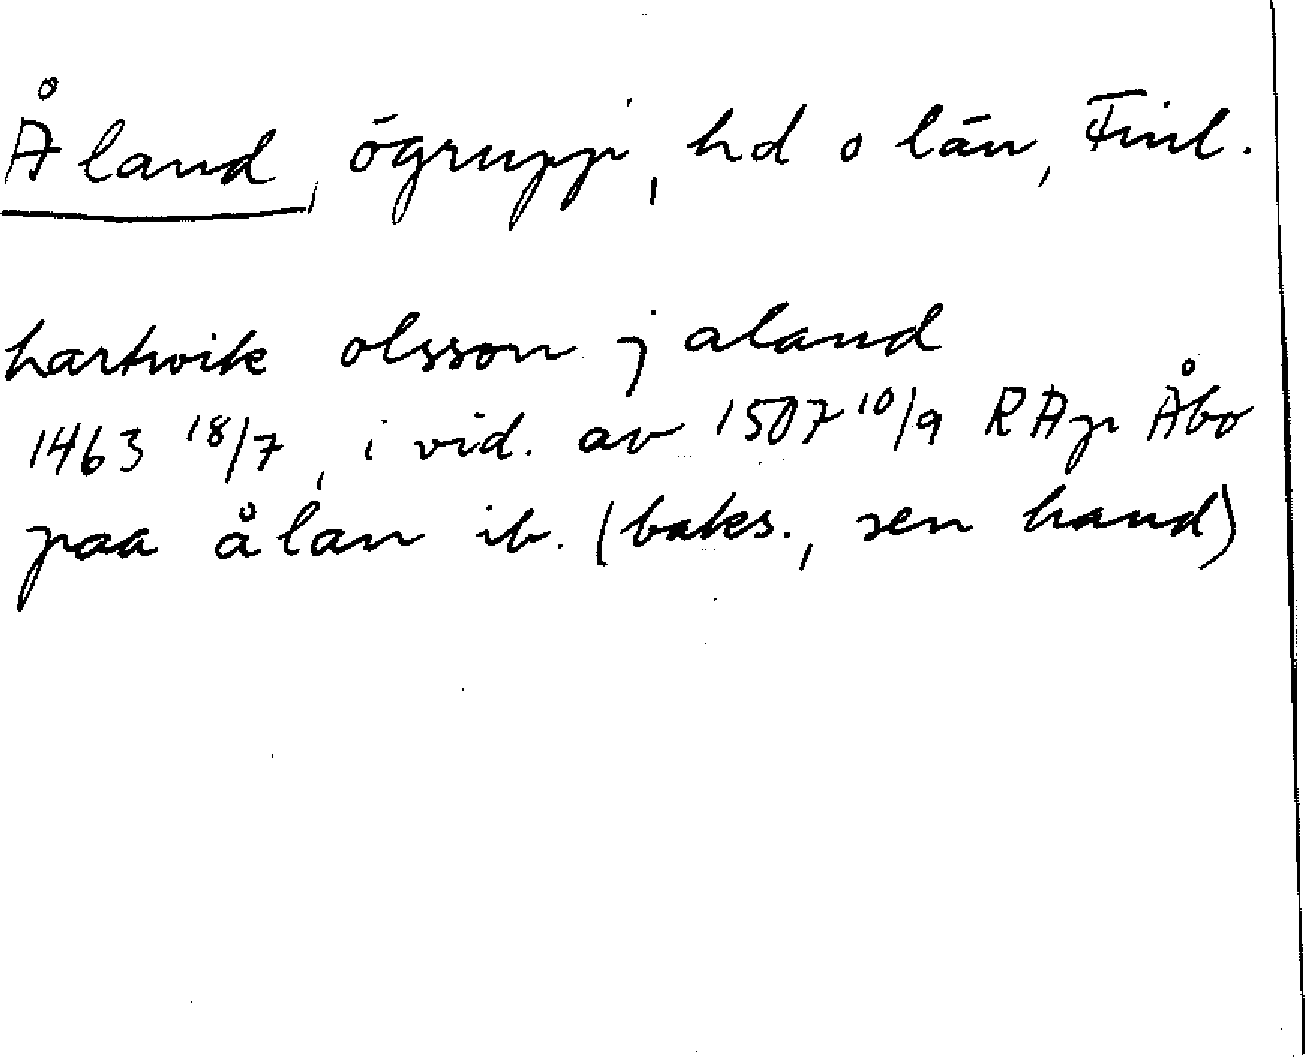 Åland, ögrupp, hd o län, Finl.
hartwik olsson j aland
1463 18/7, i vid. av 1507 10/9 RAp Åbo
paa ålan ib. (baks., sen hand)